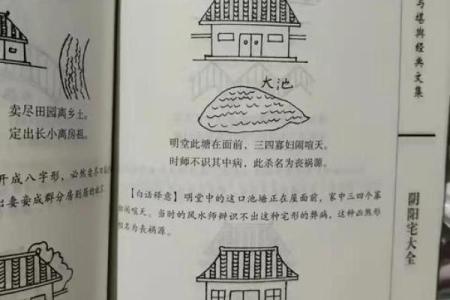 卖尽田园离乡土。
定出长小离房祖。
大池
明堂此塘在面前，三四寡妇闹喧天。
时师不识其中病，此杀名为丧祸源。
【白话释意】明堂中的这口池塘正在屋面前，家中三四个寡
妇闹喧天。当时的风水师辨识不出这种定形的弊病，这种凶煞形
名为丧祸源。
与堪舆经典文集
阴阳宅大全